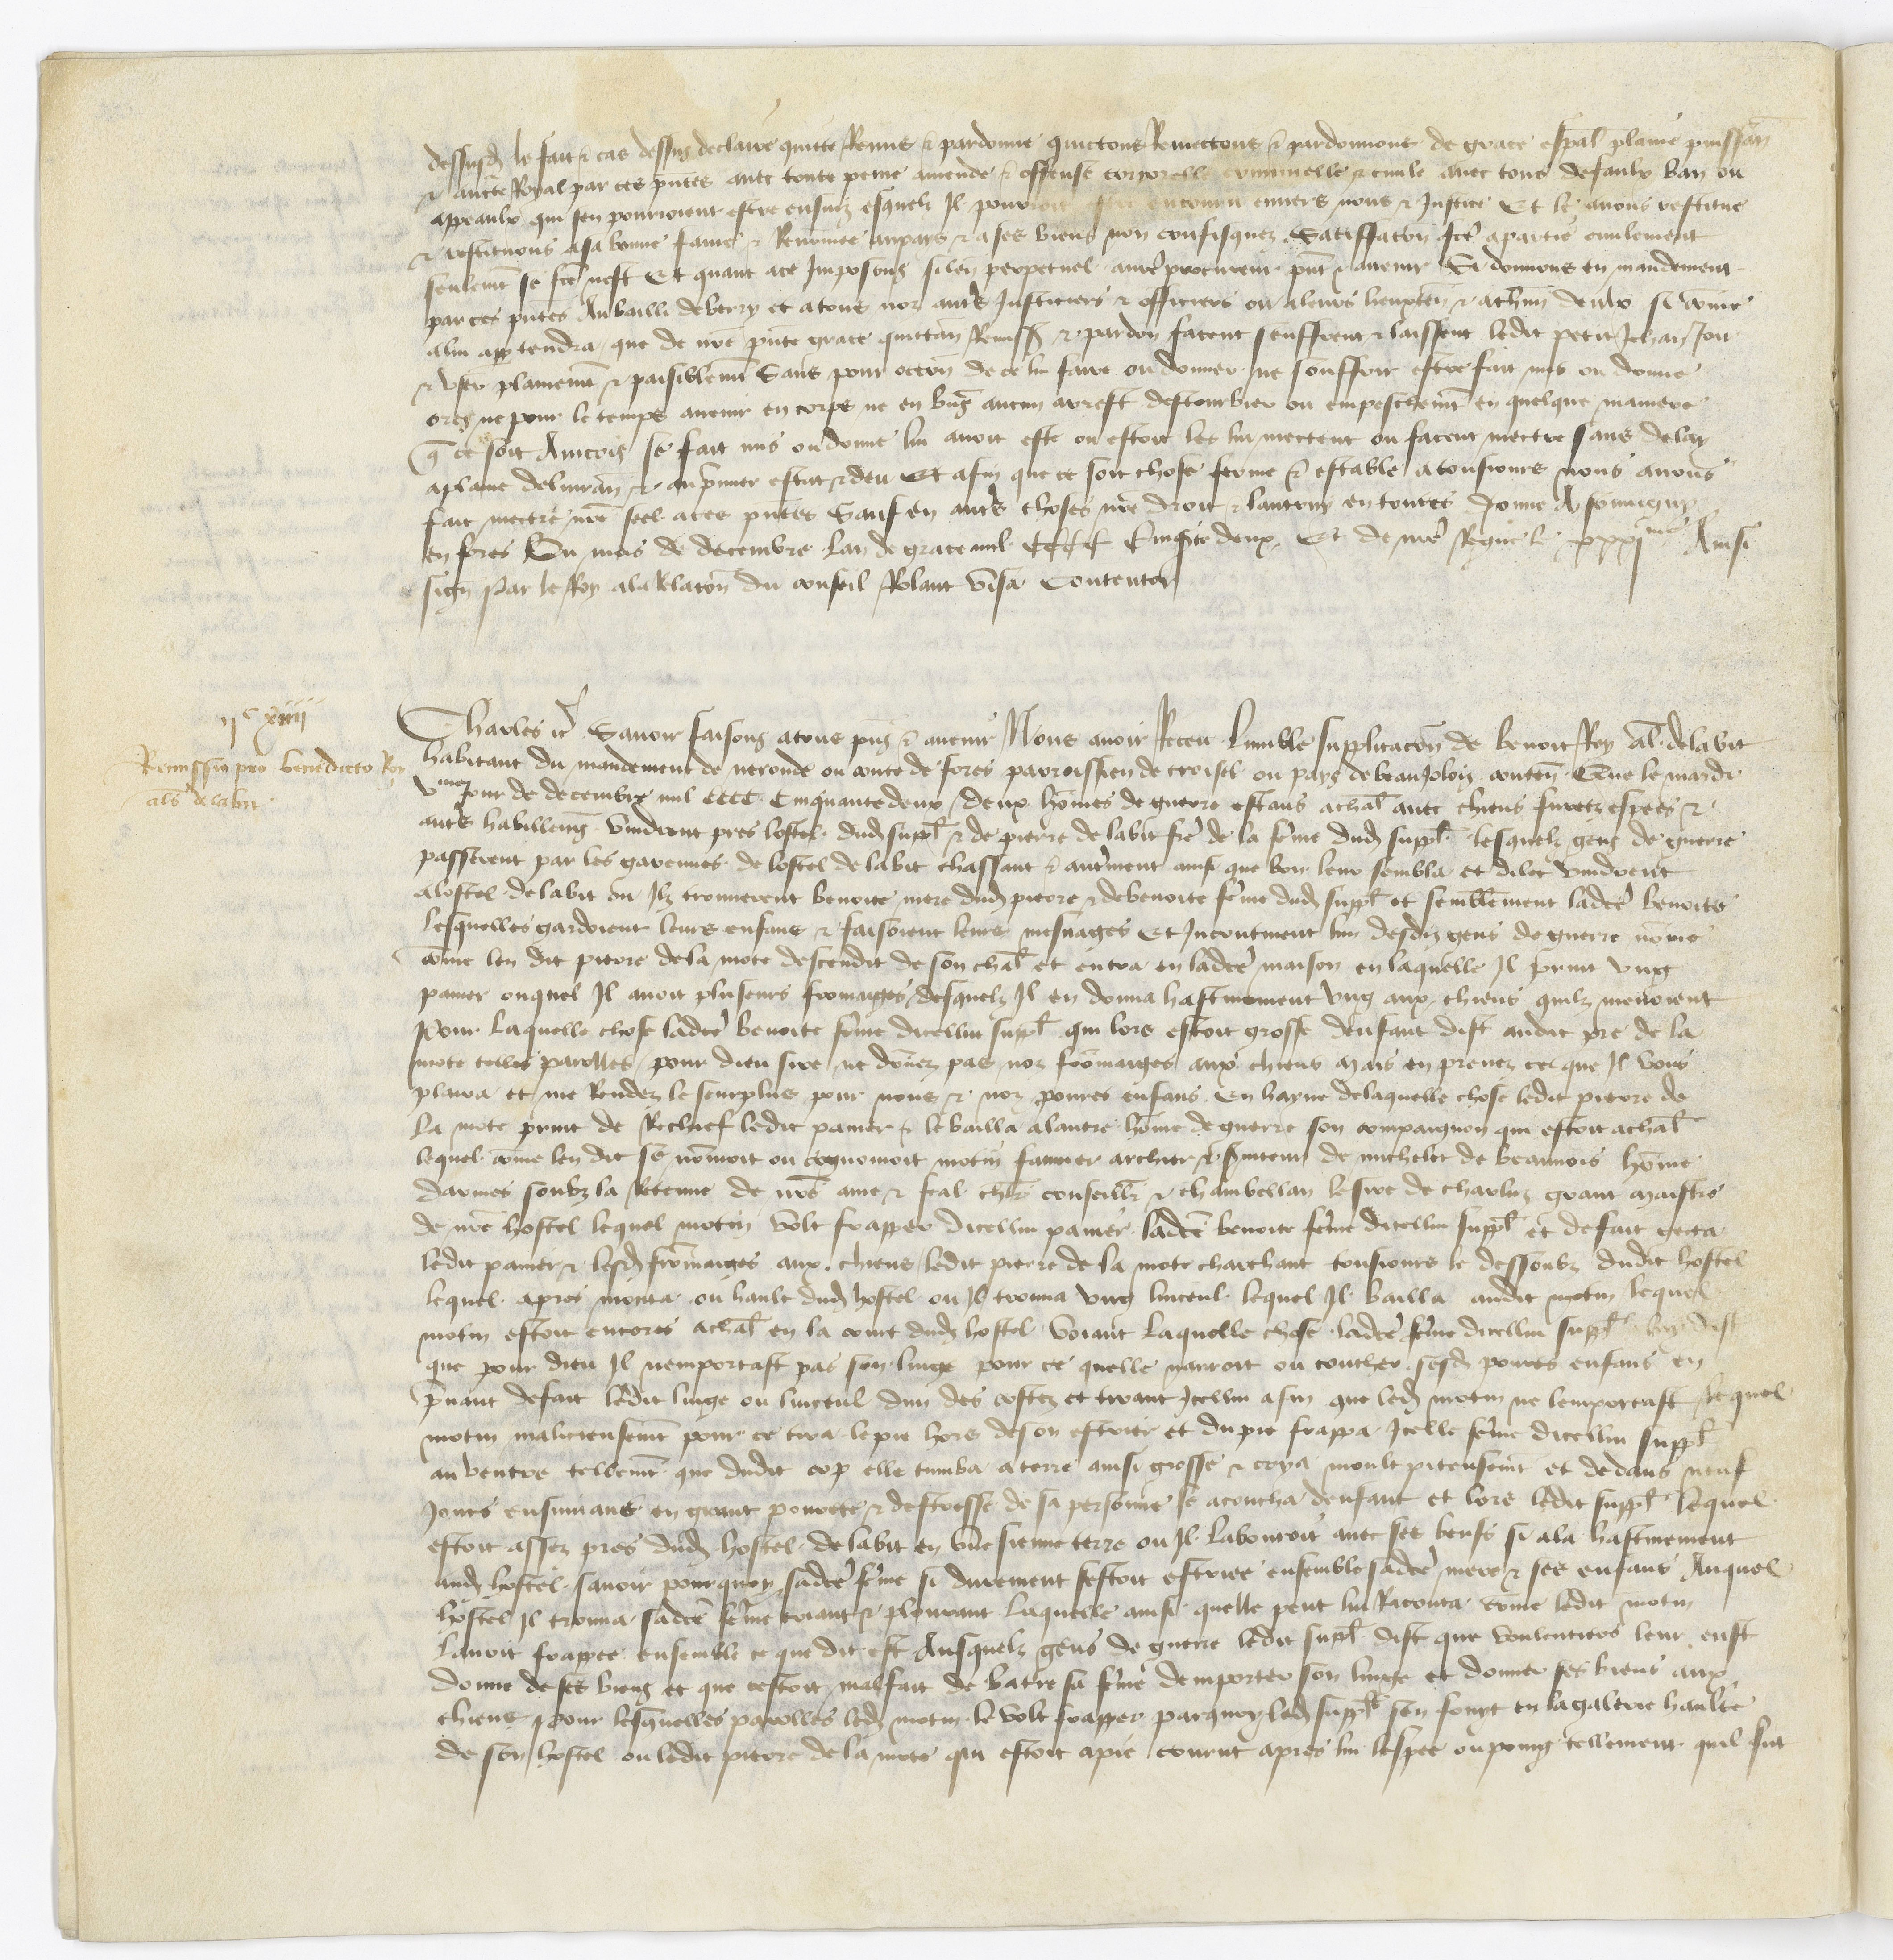 dessusd le fait & cas dessus declaire quitte Remis & pardonne quictons Remectons & pardonnons de grace espal plaine puissan
& aucte Royal par ces pntes avec toute peine amende & offense corporelle criminelle & civile avec tous defaulx ban ou
appeaulx qui sen pourroient estre ensuiz esquelz Il pourroit estre encouru envers nous & Justice Et le avons restitue
& restituons a sa bonne fame & Renomee aupays & a ses biens non confisquez Satiffacon fce a partie civilement
seulemt se fce nest Et quant a ce Imposons silen perpetuel a nre procureur pnt & avenir Si donnons en mandement
par ces pntes Au bailli de berry et a tous noz autrs Justiciers & officiers ou a leurs lieuxten & a chun deulx si come
a lui appartendra que de nre pnte grace quittan Remiss & pardon facent seuffrent & laissent ledit petit Jehan Joir
& user plainemt & paisiblemt Sans pour occon de ce lui faire ou donner ne souffrir estre fait mis ou donne
ores ne pour le temps avenir en corps ne en biens aucun arrest destourbier ou empeschemt en quelque maniere
q ce soit Aincois se fait mis ou donne lui avoit este ou estoit les lui mectent ou facent mectre sans delay
a plaine delivran & au prmier estat & deu Et afin que ce soit chose ferme & estable a tousiours nous avons
fait mectre nre seel a ces pntes Sauf en autrs choses nre droit & lautruy en toutes Donne A
en fores Ou mois de decembre Lan de grace mil CCCC Cinqte deux Et de nre Regne le xxxime Ainsi
sign Par le Roy a la Relacon du conseil Rolant Visa Contentor
IIc xiiii
Remissio pro benedicto Roy
als de labit
Charles &c Savoir faisons a tous pns & avenir Nous avoir Receu Lumble supplicacon de benoit Roy al de labit
habitant du mandement de neronde ou conte de fores parroissien de croisel ou pays de beaujolois conten Que le mardi
vme Jour de decembre mil CCCC Cinquante deux deux homes de guerre estans a chal avec chiens furetz espees &
autrs habillemens vindrent pres lostel dud suppl & de pierre de labit fre de la feme dud suppl lesquelz gens de guerre
passerent par les garennes de lostel de labit chassant & autrment ainsi que bon leur sembla et dilec vindrent
a lostel de labit ou Ilz trouverent benoite mere dud pierre & de benoite feme dud suppl et semblement ladce benoite
lesquelles gardoient leurs enfans & faisoient leurs mesnages Et Incontinent lun desdiz gens de guerre nome
come len dit pierre de la mote descendit de son chal et entra en ladce maison en laquelle Il print ung
panier ouquel Il avoit pluseurs fromaiges desquelz Il en donna hastivement ung aux chiens quilz menoient
Pour Laquelle chose ladce benoite feme dicellui suppl qui lors estoit grosse denfant dist audit pre de la
mote telles parolles pour dieu sire ne donez pas noz fromaiges aux chiens Mais en prenez ce que Il vous
plaira et me Rendez le seurplus pour nous & noz povres enfans En hayne de laquelle chose ledit pierre de
La mote print de Rechief ledit panier & le bailla a lautre home de guerre son compaignon qui estoit a chal
lequel come len dit se nommoit ou cognomoit motin archier & servteur de michelet de beauvois home
darmes soubz la Retenue de nre ame & feal chr conseillr & chambellan le sire de charluz grant Maistre
de nre hostel lequel motin volt frapper dicellui panier ladce benoite feme dicellui suppl et de fait gecta
ledit panier & lesd fromaiges aux chiens ledit pierre de la mote charchant tousiours le dessoubz dudit hostel
lequel apres monta ou hault dud hostel ou Il trouva ung linceul lequel Il bailla audit motin lequel
motin estoit encores a chal en la court dud hostel Voiant Laquelle chose ladce feme dicellui suppl luy dist
que pour dieu Il nemportast pas son linge pour ce quelle nauroit ou coucher sesd povres enfans en
prnant de fait ledit linge ou linceul dun des costez et tirant Icellui afin que led motin ne lemportast lequel
motin malicieusemt pour ce tira le pie hors de son estrier et du pie frappa Icelle feme dicellui suppl
au ventre tellemt que dudit cop elle tumba a terre ainsi grosse & crya moult piteusemt et dedans neuf
Jours ensuivans en grant povrete & destresse de sa personne se acoucha denfant et lors ledit suppl lequel
estoit assez pres dud hostel de labit en une sienne terre ou Il labouroit avec ses beufs si ala hastivement
aud hostel savoir pourquoy sadce feme si durement sestoit escriee ensemble sadce mere & ses enfans Auquel
hostel Il trouva sadce feme criant & plourant laquelle ainsi quelle peut lui Raconta come ledit motin
lavoit frappee ensemble ce que dit est Ausquelz gens de guerre ledit suppl dist que voulentiers leur eust
donne de ses biens et que cestoit malfait de batre sa feme demporter son linge et donner ses biens aux
chiens Pour lesquelles parolles led motin le volt frapper parquoy led suppl sen fouyt en la galerie haulte
de son hostel ou ledit pierre de la mote qui estoit a pie courut apres lui lespee ou poing tellement quil fut